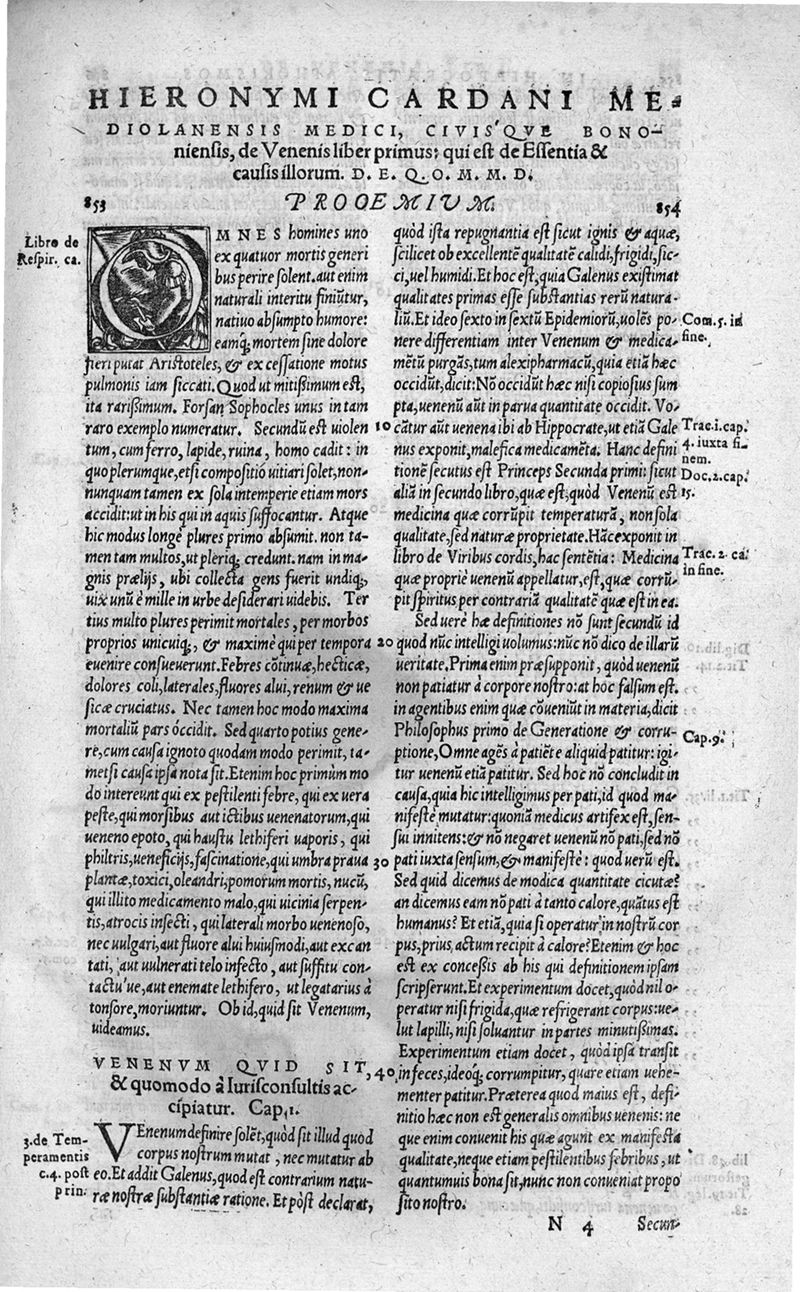 HIERONYMI CARDANI ME-
DIOLANENSIS MEDICI, CIVIS'QVE BONO-
niensis, de Venenis liber primus: qui est de Essentia &
causis illorum. D. E. Q. O. M. M. D.
PROOEMIUM.
853
Libro de
Respir. ca.
OMNES homines uno
ex quatuor mortis generi
bus perire solent. aut enim
naturali interitu finiũtur,
natiuo absumpto humore:
eamq; mortem sine dolore
fieri putat Aristoteles, & ex cessatione motus
pulmonis iam siccati. Quod ut mitißimum est,
ita rarißimum. Forsan Sophocles unus in tam
raro exemplo numeratur. Secundũ est uiolen
tum, cum ferro, lapide, ruina, homo cadit: in
quo plerumque, etsi compositio uitiari solet, non-
nunquam tamen ex sola intemperie etiam mors
accidit: ut in his qui in aquis suffocantur. Atque
hic modus longè plures primo absumit. non ta-
men tam multos, ut pleriq; credunt. nam in ma-
gnis prælijs, ubi collecta gens fuerit undiq;,
uix unũ è mille in urbe desiderari uidebis. Ter
tius multo plures perimit mortales, per morbos
proprios unicuiq;, & maximè qui per tempora
euenire consueuerunt. Febres cõtinuæ, hecticæ,
dolores coli, laterales, fluores alui, renum & ue
sicæ cruciatus. Nec tamen hoc modo maxima
mortaliũ pars óccidit. Sed quarto potius gene-
re, cum causa ignoto quodam modo perimit, ta-
metsi causa ipsa nota sit. Etenim hoc primùm mo
do intereunt qui ex pestilenti febre, qui ex uera
peste, qui morsibus aut ictibus uenenatorum, qui
ueneno epoto, qui haustu lethiferi uaporis, qui
philtris, ueneficijs, fascinatione, qui umbra praua
plantæ, toxici, oleandri, pomorum mortis, nucũ,
qui illito medicamento malo, qui uicinia serpen-
tis, atrocis insecti, qui laterali morbo uenenoso,
nec uulgari, aut fluore alui huiusmodi, aut excan
tati, aut uulnerati telo infecto, aut suffitu con-
tactu'ue, aut enemate lethifero, ut legatarius à
tonsore, moriuntur. Ob id, quid sit Venenum,
uideamus.
VENENVM QVID SIT,
& quomodo à Iurisconsultis ac-
cipiatur. Cap. 1.
3. de Tem-
peramentis
c. 4. post
prin.
VEnenum definire solẽt, quòd sit illud quòd
corpus nostrum mutat, nec mutatur ab
eo. Et addit Galenus, quod est contrarium natu-
ræ nostræ substantiæ ratione. Et pòst declarat,
10
20
30
40
854
quòd ista repugnantia est sicut ignis & aquæ,
scilicet ob excellentẽ qualitatẽ calidi, frigidi, sic-
ci, uel humidi. Et hoc est, quia Galenus existimat
qualitates primas esse substantias rerũ natura-
liũ. Et ideo sexto in sextũ Epidemiorũ, uolẽs po-
nere differentiam inter Venenum & medica-
mẽtũ purgãs, tum alexipharmacũ, quia etiã hæc
occidũt, dicit: Nõ occidũt hæc nisi copiosius sum
pta, uenenũ aũt in parua quantitate occidit. Vo-
cãtur aũt uenena ibi ab Hippocrate, ut etiã Gale
nus exponit, malefica medicamẽta. Hanc defini
tionẽ secutus est Princeps Secunda primi: sicut
aliã in secundo libro, quæ est; quòd Venenũ est
medicina quæ corrũpit temperaturã, non sola
qualitate, sed naturæ proprietate. Hãc exponit in
libro de Viribus cordis, hac sentẽtia: Medicina
quæ propriè uenenũ appellatur, est, quæ corrũ-
pit spiritus per contrariã qualitatẽ quæ est in ea.
Sed uerè hæ definitiones nõ sunt secundũ id
quod nũc intelligi uolumus: nũc nõ dico de illarũ
ueritate. Prima enim præsupponit, quòd uenenũ
non patiatur à corpore nostro: at hoc falsum est.
in agentibus enim quæ cõueniũt in materia, dicit
Philosophus primo de Generatione & corru-
ptione, Omne agẽs à patiẽte aliquid patitur: igi-
tur uenenũ etiã patitur. Sed hoc nõ concludit in
causa, quia hic intelligimus per pati, id quod ma-
nifestè mutatur: quoniã medicus artifex est, sen-
sui innitens: & nõ negaret uenenũ nõ pati, sed nõ
pati iuxta sensum, & manifestè: quod uerũ est.
Sed quid dicemus de modica quantitate cicutæ?
an dicemus eam nõ pati à tanto calore, quãtus est
humanus? Et etiã, quia si operatur in nostrũ cor
pus, prius, actum recipit à calore? Etenim & hoc
est ex conceßis ab his qui definitionem ipsam
scripserunt. Et experimentum docet, quòd nil o-
peratur nisi frigida, quæ refrigerant corpus: ue-
lut lapilli, nisi soluantur in partes minutißimas.
Experimentum etiam docet, quòd ipsa transit
in feces, ideoq; corrumpitur, quare etiam uehe-
menter patitur. Præterea quod maius est, defi-
nitio hæc non est generalis omnibus uenenis: ne
que enim conuenit his quæ agunt ex manifesta
qualitate, neque etiam pestilentibus febribus, ut
quantumuis bona sit, nunc non conueniat propo
sito nostro.
Com. 5. in
fine.
Trac. 1. cap.
4. iuxta fi-
nem.
Doc. 2. cap.
15.
Trac. 2. ca.
in fine.
Cap. 9.
N 4 Secun-